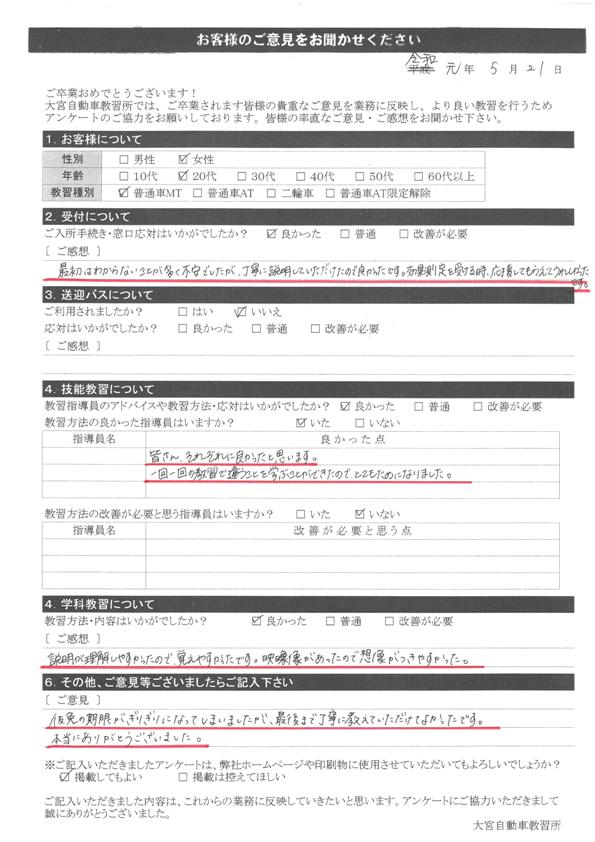 お客様のご意見をお聞かせください
令和
平成 元年 5月21日
ご卒業おめでとうございます！
大宮自動車教習所では、ご卒業されます皆様の貴重なご意見を業務に反映し、より良い教習を行うため
アンケートのご協力をお願いしております。皆様の率直なご意見・ご感想をお聞かせ下さい。
1. お客様について
性別 □ 男性 ☑ 女性
年齢 □ 10代 ☑ 20代 □ 30代 □ 40代 □ 50代 □ 60代以上
教習種別 ☑ 普通車MT □ 普通車AT □ 二輪車 □ 普通車AT限定解除
2. 受付について
ご入所手続き・窓口応対はいかがでしたか？ ☑ 良かった □ 普通 □ 改善が必要
〔 ご感想 〕
最初はわからないことが多く不安でしたが、丁寧に説明していただけたので良かったです。効果測定を受ける時、応援してもらえてうれしかった
です。
3. 送迎バスについて
ご利用されましたか？ □ はい ☑ いいえ
応対はいかがでしたか？ □ 良かった □ 普通 □ 改善が必要
〔 ご感想 〕
4. 技能教習について
教習指導員のアドバイスや教習方法・応対はいかがでしたか？ ☑ 良かった □ 普通 □ 改善が必要
教習方法の良かった指導員はいますか？ ☑ いた □ いない
指導員名 良かった点
皆さん、それぞれに良かったと思います。
一回一回の教習で違うことを学ぶことができたので、とてもためになりました。
教習方法の改善が必要と思う指導員はいますか？ □ いた ☑ いない
指導員名 改善が必要と思う点
4. 学科教習について
教習方法・内容はいかがでしたか？ ☑ 良かった □ 普通 □ 改善が必要
〔 ご感想 〕
説明が理解しやすかったので、覚えやすかったです。映像があったので想像がつきやすかった。
6. その他、ご意見等ございましたらご記入下さい
〔 ご意見 〕
仮免の期限がぎりぎりになってしまいましたが、最後まで丁寧に教えていただけてよかったです。
本当にありがとうございました。
※ご記入いただきましたアンケートは、弊社ホームページや印刷物に使用させていただいてもよろしいでしょうか？
☑ 掲載してもよい □ 掲載は控えてほしい
ご記入いただきました内容は、これからの業務に反映していきたいと思います。アンケートにご協力いただきまして
誠にありがとうございました。
大宮自動車教習所